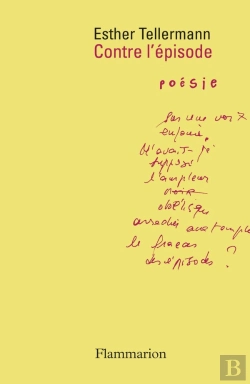 Esther Tellermann
Contre l'épisode
poésie
Pas une voix
enfouie.
N'avait-je
supposé
l'ampleur
noire
obélisque
arrachée aux temples
le fracas
des épisodes ?
Flammarion
B